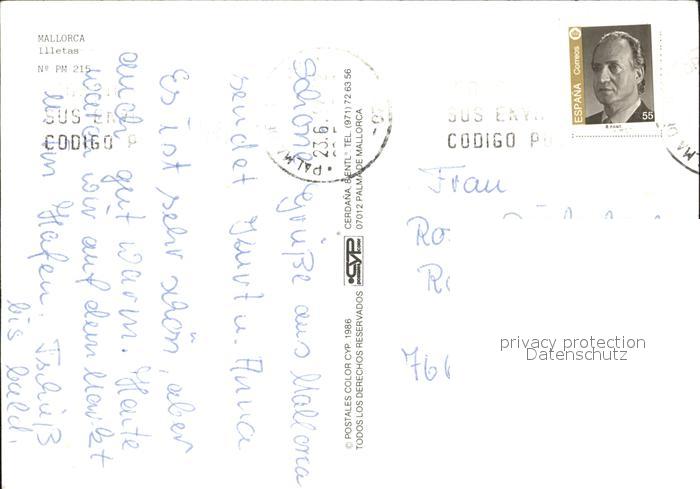 MALLORCA
illetas
Nº PM 215
SUS EN
CODIGO P
Schöne Grüße aus Mallorca
sendet Kurt u. Anna
Es ist sehr schön, aber
auch gut warm. Heute
waren wir auf dem Markt
u. im Hafen. Tschüß
bis bald.
PALM
23.6.
© POSTALES COLOR CYP. 1986
TODOS LOS DERECHOS RESERVADOS
CYP
CERDAÑA, 8 ENTLº TEL. (971) 72 63 56
07012 PALMA DE MALLORCA
SUS ENV
CODIGO P
ESPAÑA Correos
55
Frau
Ro
R
766
privacy protection
Datenschutz